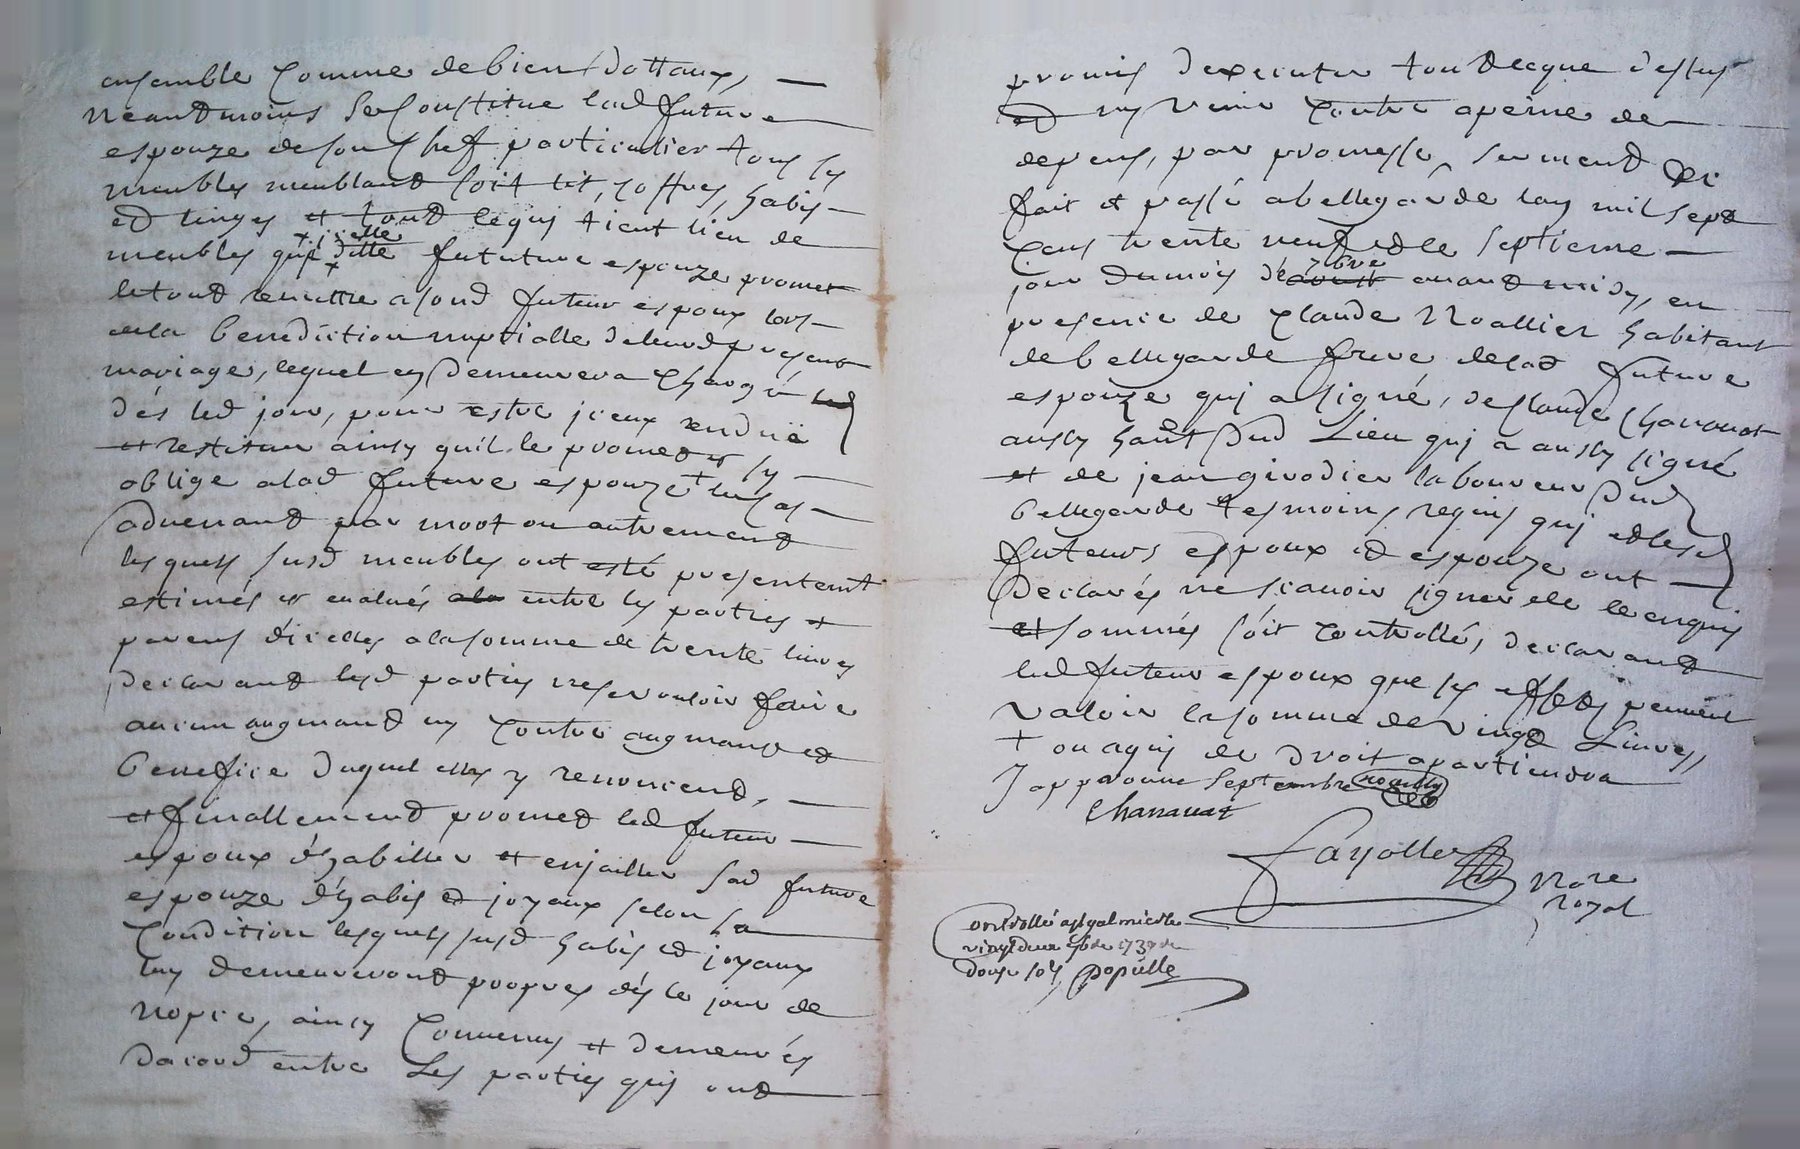 ensemble comme de bien dottaux,
neantmoins se constitue lad future
espouze de son chef particullier tous ses
meubles meublant soit lit, coffres, habis
et linges et tout ce quy tient lieu de
meubles que icelle ditte fututure espouze promet
le tout remettre a sond futeur espoux lors
de la benediction nuptialle de leurd present
mariage, lequel en demeurera chargé
dés led jour, pour estre iceux rendüe
et restituer ainsy qu'il le promet et sy
oblige a lad future espouze + le cas
advenant par mort ou autrement
lesquels susd meubles ont esté presentemt
estimés et evalués entre les parties et
parens d'icelles a la somme de trente livres
declarant lesd parties ne se vouloir faire
aucun augmant ny contre augmant et
benefice duquel elles y renoncent,
et finallement promet led futeur
espoux d'habiller et enjailler sad future
espouze d'habis et joyaux selon sa
condition lesquels susd habis et joyaux
luy demeureront propres dés le jour de
nopce, ainsy convenus et demeurés
dacord entre Les parties quy ont
promis dexecuter tout ce que dessus
et ny venir contre a peine de
depens, par promesse, serment &c
fait et passé a bellegarde lan mil sept
cens trente neuf et le septieme
jour du mois de aoust 7bre avant midy, en
presence de claude Noallier habitant
de bellegarde frere de lad future
espouze quy a signé, de claude Chanavat
aussy habt dud Lieu quy a aussy signé
et de jean girodier laboureur dud
bellegarde tesmoins requis quy et lesd
futeurs espoux et espouze ont
declarés ne scavoir signer de ce enquis
et sommés soit controllé, declarant
led futeur espoux que ses effets peuvent
valoir la somme de vingt Livres,
+ ou a quy de droit apartiendra
J approuve septembre noailly
Chanavat
Fayolle
Nore
Royal
Controllé a st galmier le
vingt deux 7bre 1739
douze sols Popülle